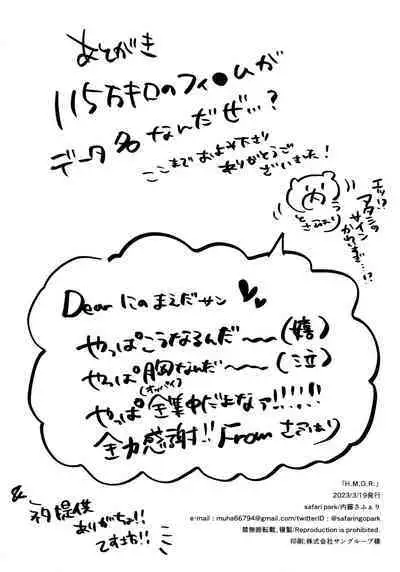 あとがき
115万キロのフィ●ムが
データ名なんだぜ…?
ここまでおよみ下さり
ありがとうござ
いました!
エッ!?
アタシの
サイン
かわいすぎ…!?
Dear にのまえだサン
やっぱこうなるんだ〜〜(嬉)
やっぱ胸なんだ〜〜(泣)
(オッパイ)
やっぱ全集中だよなァ!!!!!
全力感謝!! From さふぁり
&
ネタ提供
ありがちょ!!
てすさお!!
「H.M.G.R.」
2023/3/19発行
safari park/内藤さふぁり
e-mail : muha66794@gmail.com/twitterID : @safaringopark
禁無断転載、複製/Reproduction is prohibited.
印刷:株式会社サングループ様